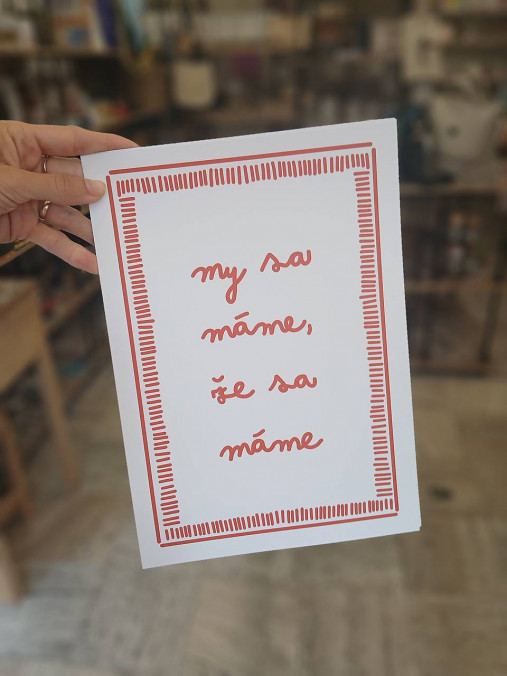 my sa
máme,
že sa
máme